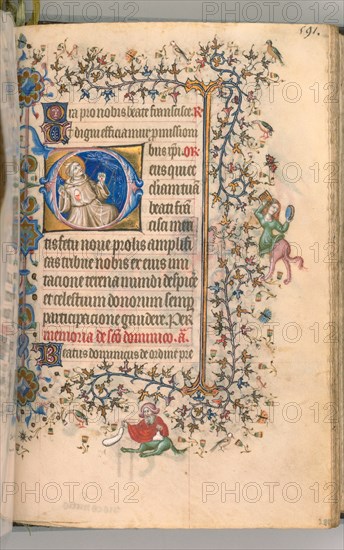 591.
Ora pro nobis beate francisce. R
Ut digni efficiamur promissioni
bus xpi. Or
eus qui ec
clesiam tuā
beati frā
cisci meri
tis fetu noue prolis amplifi
cas tribue nobis ex eius imi
tacione terena mundi despice
et celestium donorum semp
participacione gaudere. Per
memoria de scō dominico. a.
Beatus dominicus de ordine pre